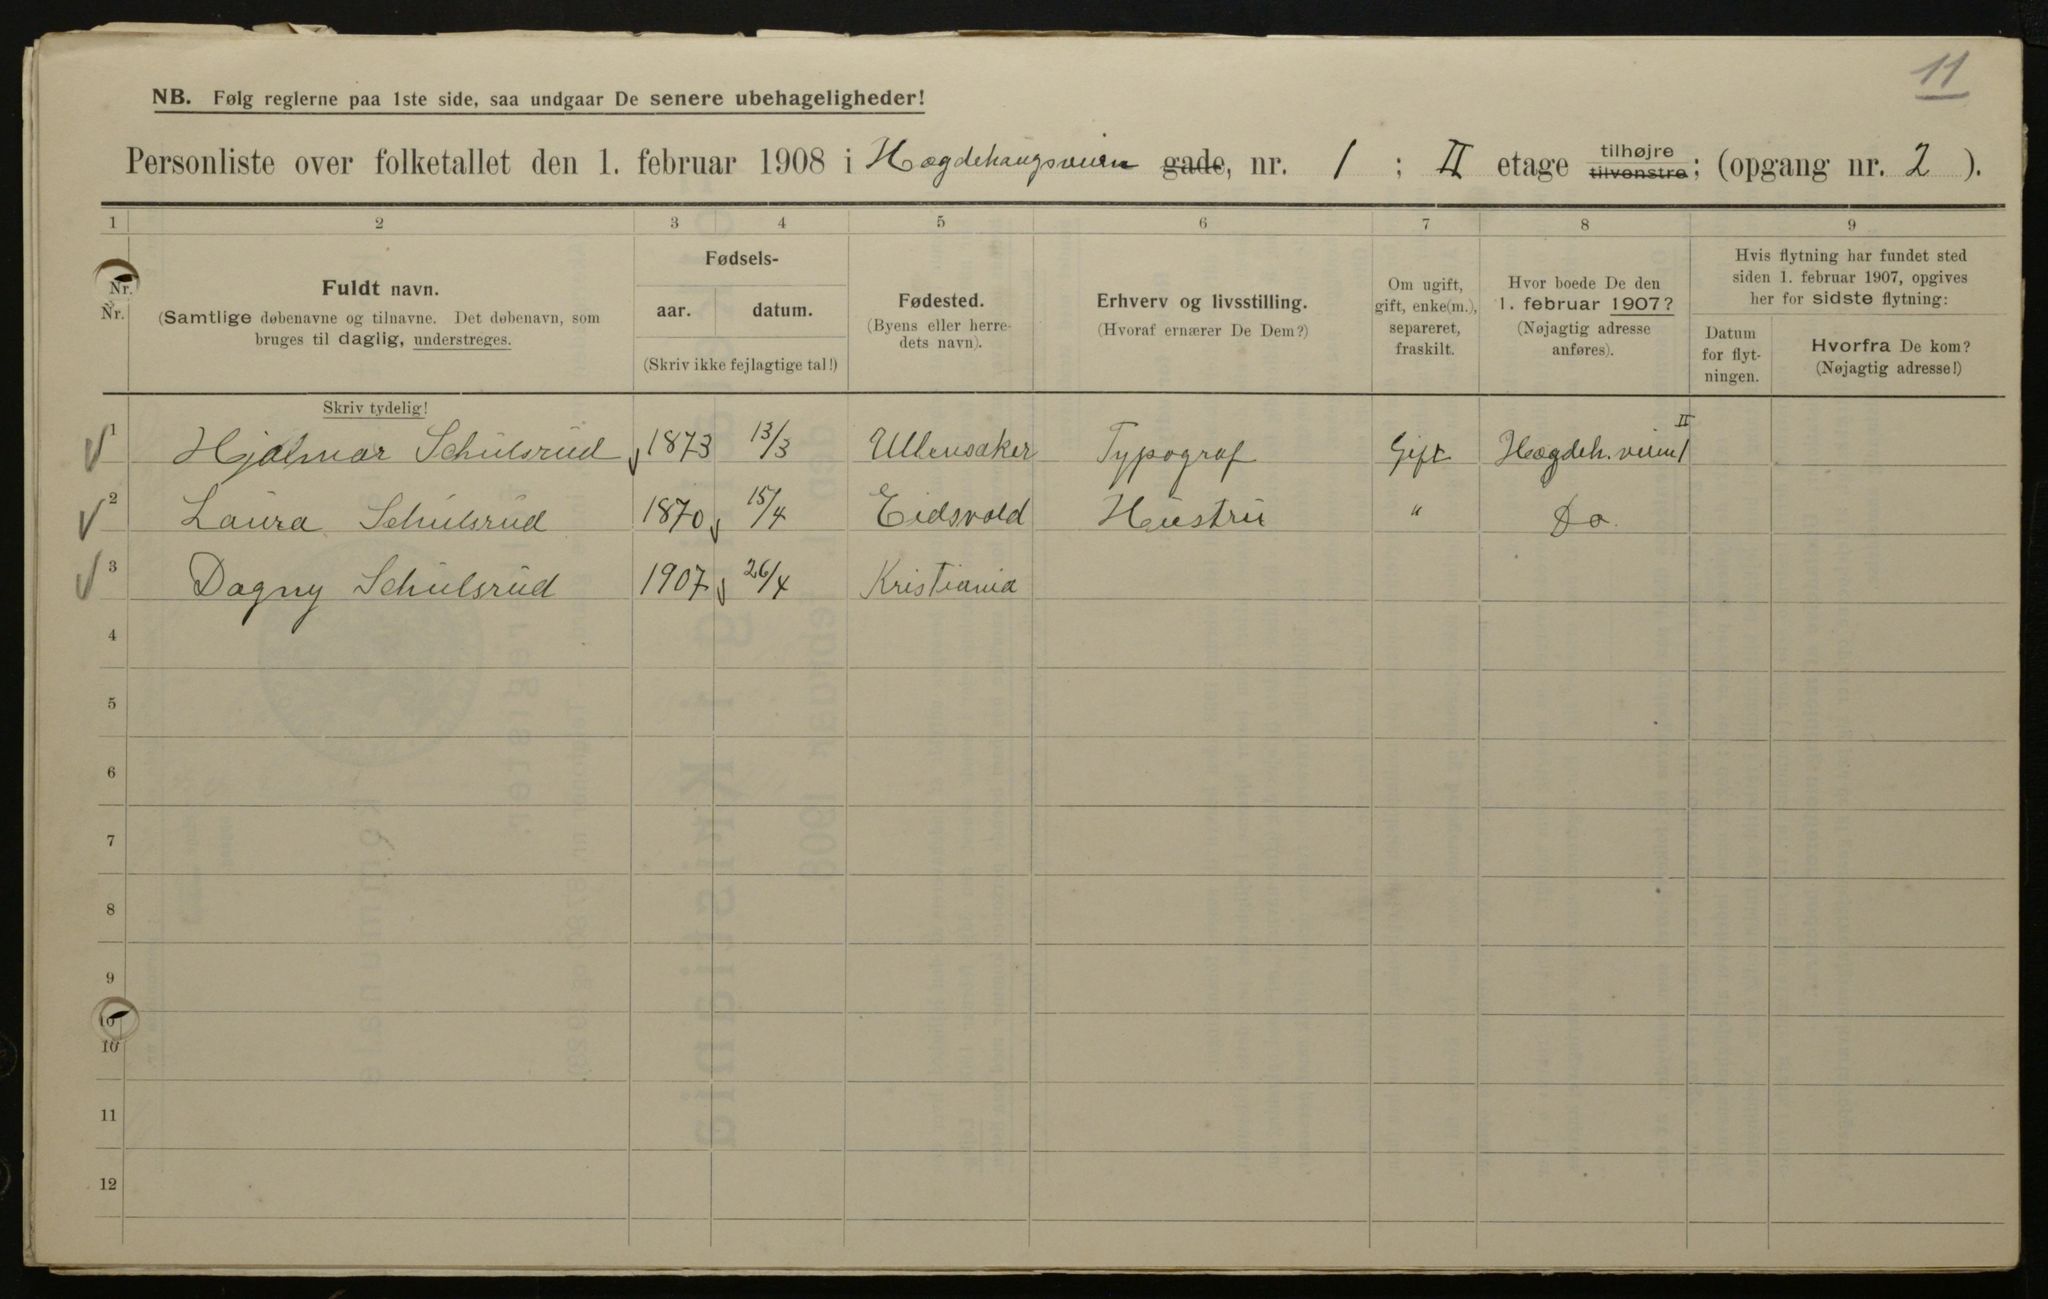 11
NB. Følg reglerne paa 1ste side, saa undgaar De senere ubehageligheder!
Personliste over folketallet den 1. februar 1908 i Hægdehaugsveien gade, nr. 1 ; II etage tilhøjre tilvenstre; (opgang nr. 2 ).
1 2 3 4 5 6 7 8 9
Nr.
Nr.
Fuldt navn.
(Samtlige døbenavne og tilnavne. Det døbenavn, som
bruges til daglig, understreges.
Skriv tydelig!
Fødsels-
aar. datum.
(Skriv ikke fejlagtige tal!)
Fødested.
(Byens eller herre-
dets navn).
Erhverv og livsstilling.
(Hvoraf ernærer De Dem?)
Om ugift,
gift, enke(m.),
separeret,
fraskilt.
Hvor boede De den
1. februar 1907?
(Nøjagtig adresse
anføres).
Hvis flytning har fundet sted
siden 1. februar 1907, opgives
her for sidste flytning:
Datum
for flyt-
ningen.
Hvorfra De kom?
(Nøjagtig adresse!)
1 Hjalmar Schulsrud 1873 13/3 Ullensaker Typograf Gift Hægdeh.veien 1 II
2 Laura Schulsrud 1870 15/4 Eidsvold Hustru " Do.
3 Dagny Schulsrud 1907 26/4 Kristiania
4
5
6
7
8
9
10
10
11
12